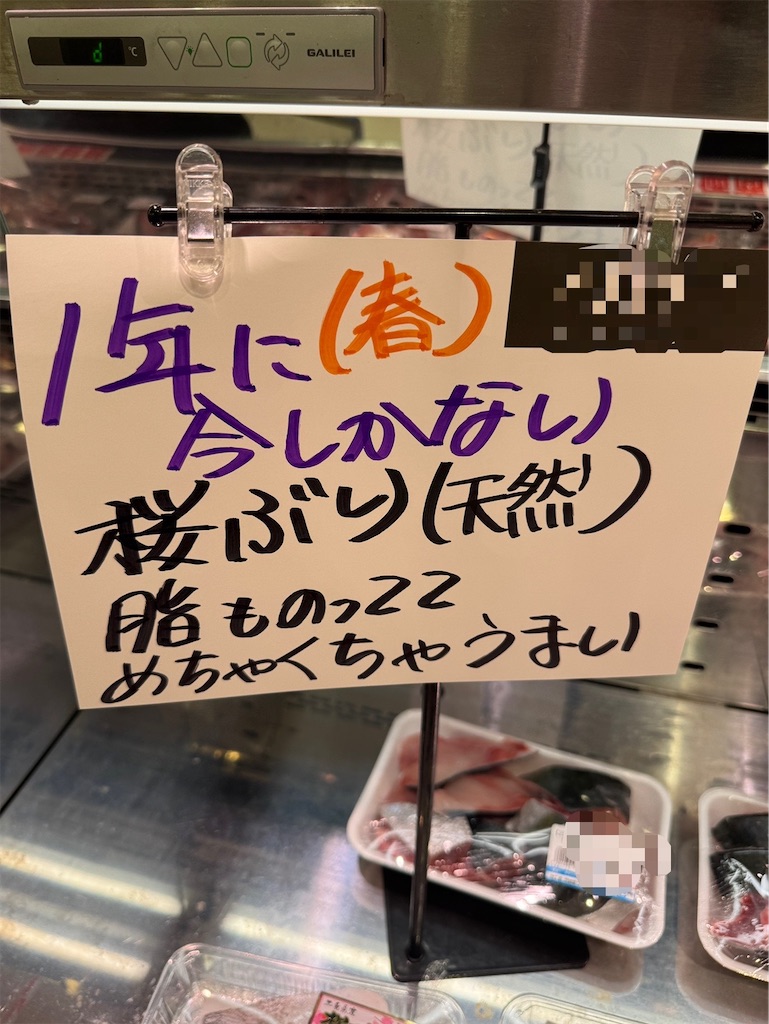 d ℃
GALILEI
1年に(春)
今しかない
桜ぶり(天然)
脂ものってて
めちゃくちゃうまい